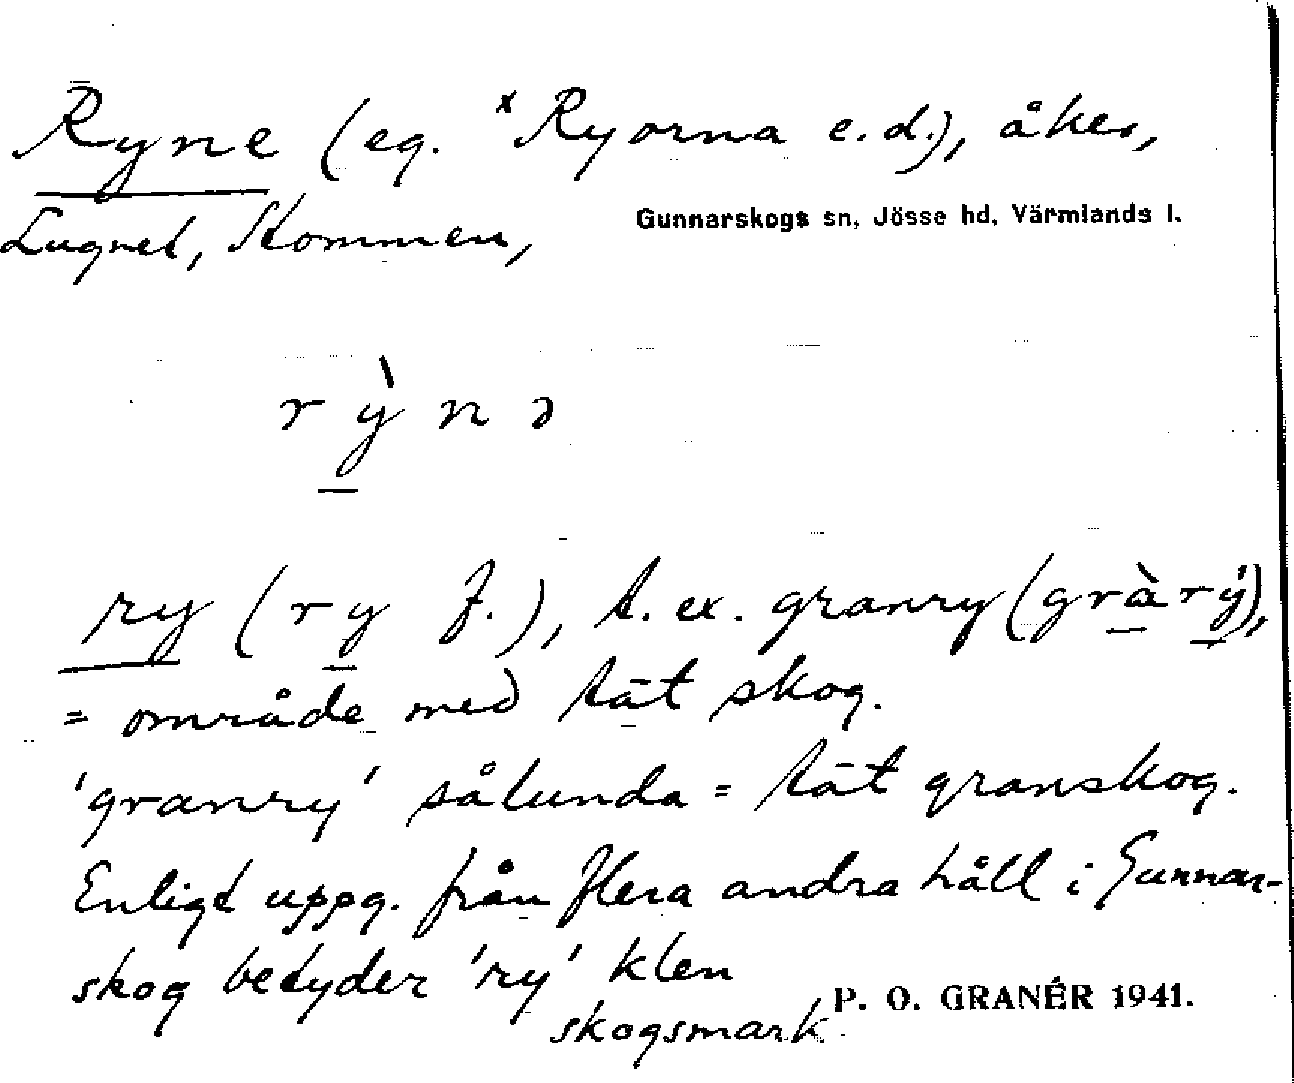 Ryne (eg. ˣRyorna e.d.), åker,
Lugnet, Stommen,
Gunnarskogs sn, Jösse hd, Värmlands l.
rỳnə
ry (ry f.), t. ex. granry (gràrý),
= område med tät skog.
'granry' sålunda = tät granskog.
Enligt uppg. från flera andra håll i Gunnar-
skog betyder 'ry' klen
skogsmark.
P. O. GRANÉR 1941.